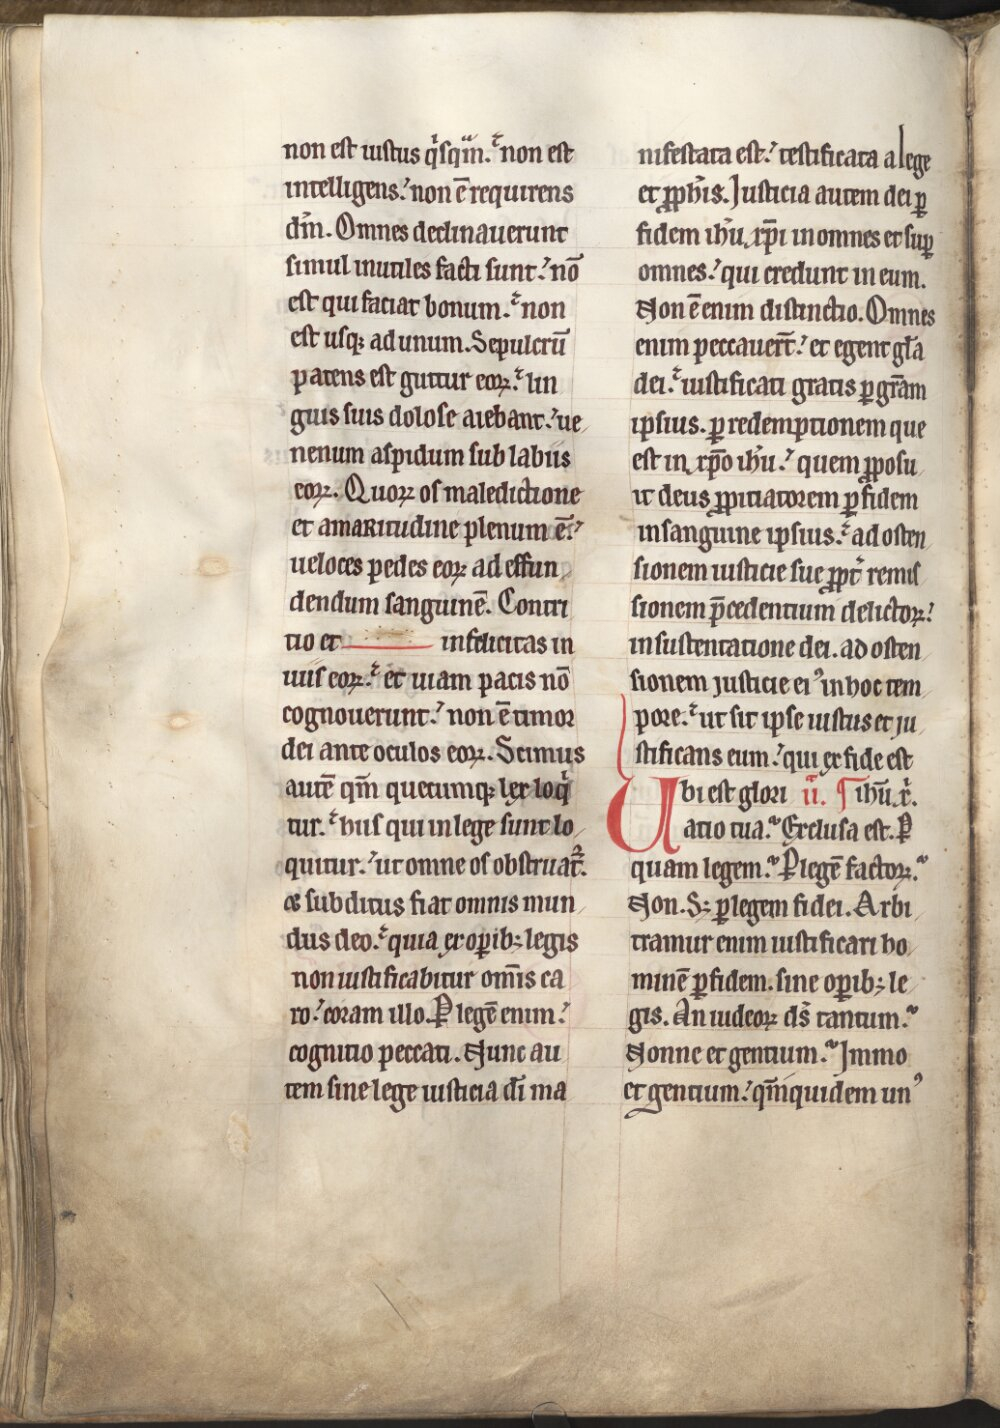 non est iustus q̇sqͣm. non est
intelligens. non ē requirens
dm̄. Omnes declinauerunt
simul inutiles facti sunt. nō
est qui faciat bonum. non
est usq; ad unum. Sepulcrū
patens est guttur eoꝝ. lin
guis suis dolose aiebant. ue
nenum aspidum sub labiis
eoꝝ. Quoꝝ os maledictione
et amaritudine plenum ē.
ueloces pedes eoꝝ ad effun
dendum sanguinē. Contri
tio et infelicitas in
uiis eoꝝ. et uiam pacis nō
cognouerunt. non ē timor
dei ante oculos eoꝝ. Scimus
autē qm̄ quecumq; lex loqͥ
tur. hiis qui in lege sunt lo
quitur. ut omne os obstruat᷑.
& subditus fiat omnis mun
dus deo. quia ex oꝑib; legis
non iustificabitur om̄is ca
ro. coram illo. Ꝑ legē enim.
cognitio peccati. Nunc au
tem sine lege iusticia dī ma
nifestata est. testificata a lege
et ꝓph̄is. Justicia autem dei ꝑ
fidem ih̄u xp̄i in omnes et suꝑ
omnes. qui credunt in eum.
Non ē enim distinctio. Omnes
enim peccauer̄t. et egent gl̄a
dei. iustificati gratis ꝑ gr̄am
ipsius. ꝑ redemptionem que
est in xp̄o ih̄u. quem ꝓposu
it deus ꝓpitiatorem ꝑ fidem
in sanguine ipsius. ad osten
sionem iusticie sue ꝓpt̄ remis
sionem p̄cedentium delictoꝝ.
in sustentatione dei. ad osten
sionem justicie eiꝰ in hoc tem
pore. ut sit ipse iustus et ju
stificans eum. qui ex fide est
Ubi est glori ii. ¶ ih̄u x̄.
atio tua. Exclusa est. Ꝑ
quam legem. Ꝑ legē factoꝝ.
Non. S; ꝑ legem fidei. Arbi
tramur enim iustificari ho
minē ꝑ fidem. sine oꝑib; le
gis. An iudeoꝝ ds̄ tantum.
Nonne et gentium. Jmmo
et gentium. qm̄quidem unꝰ